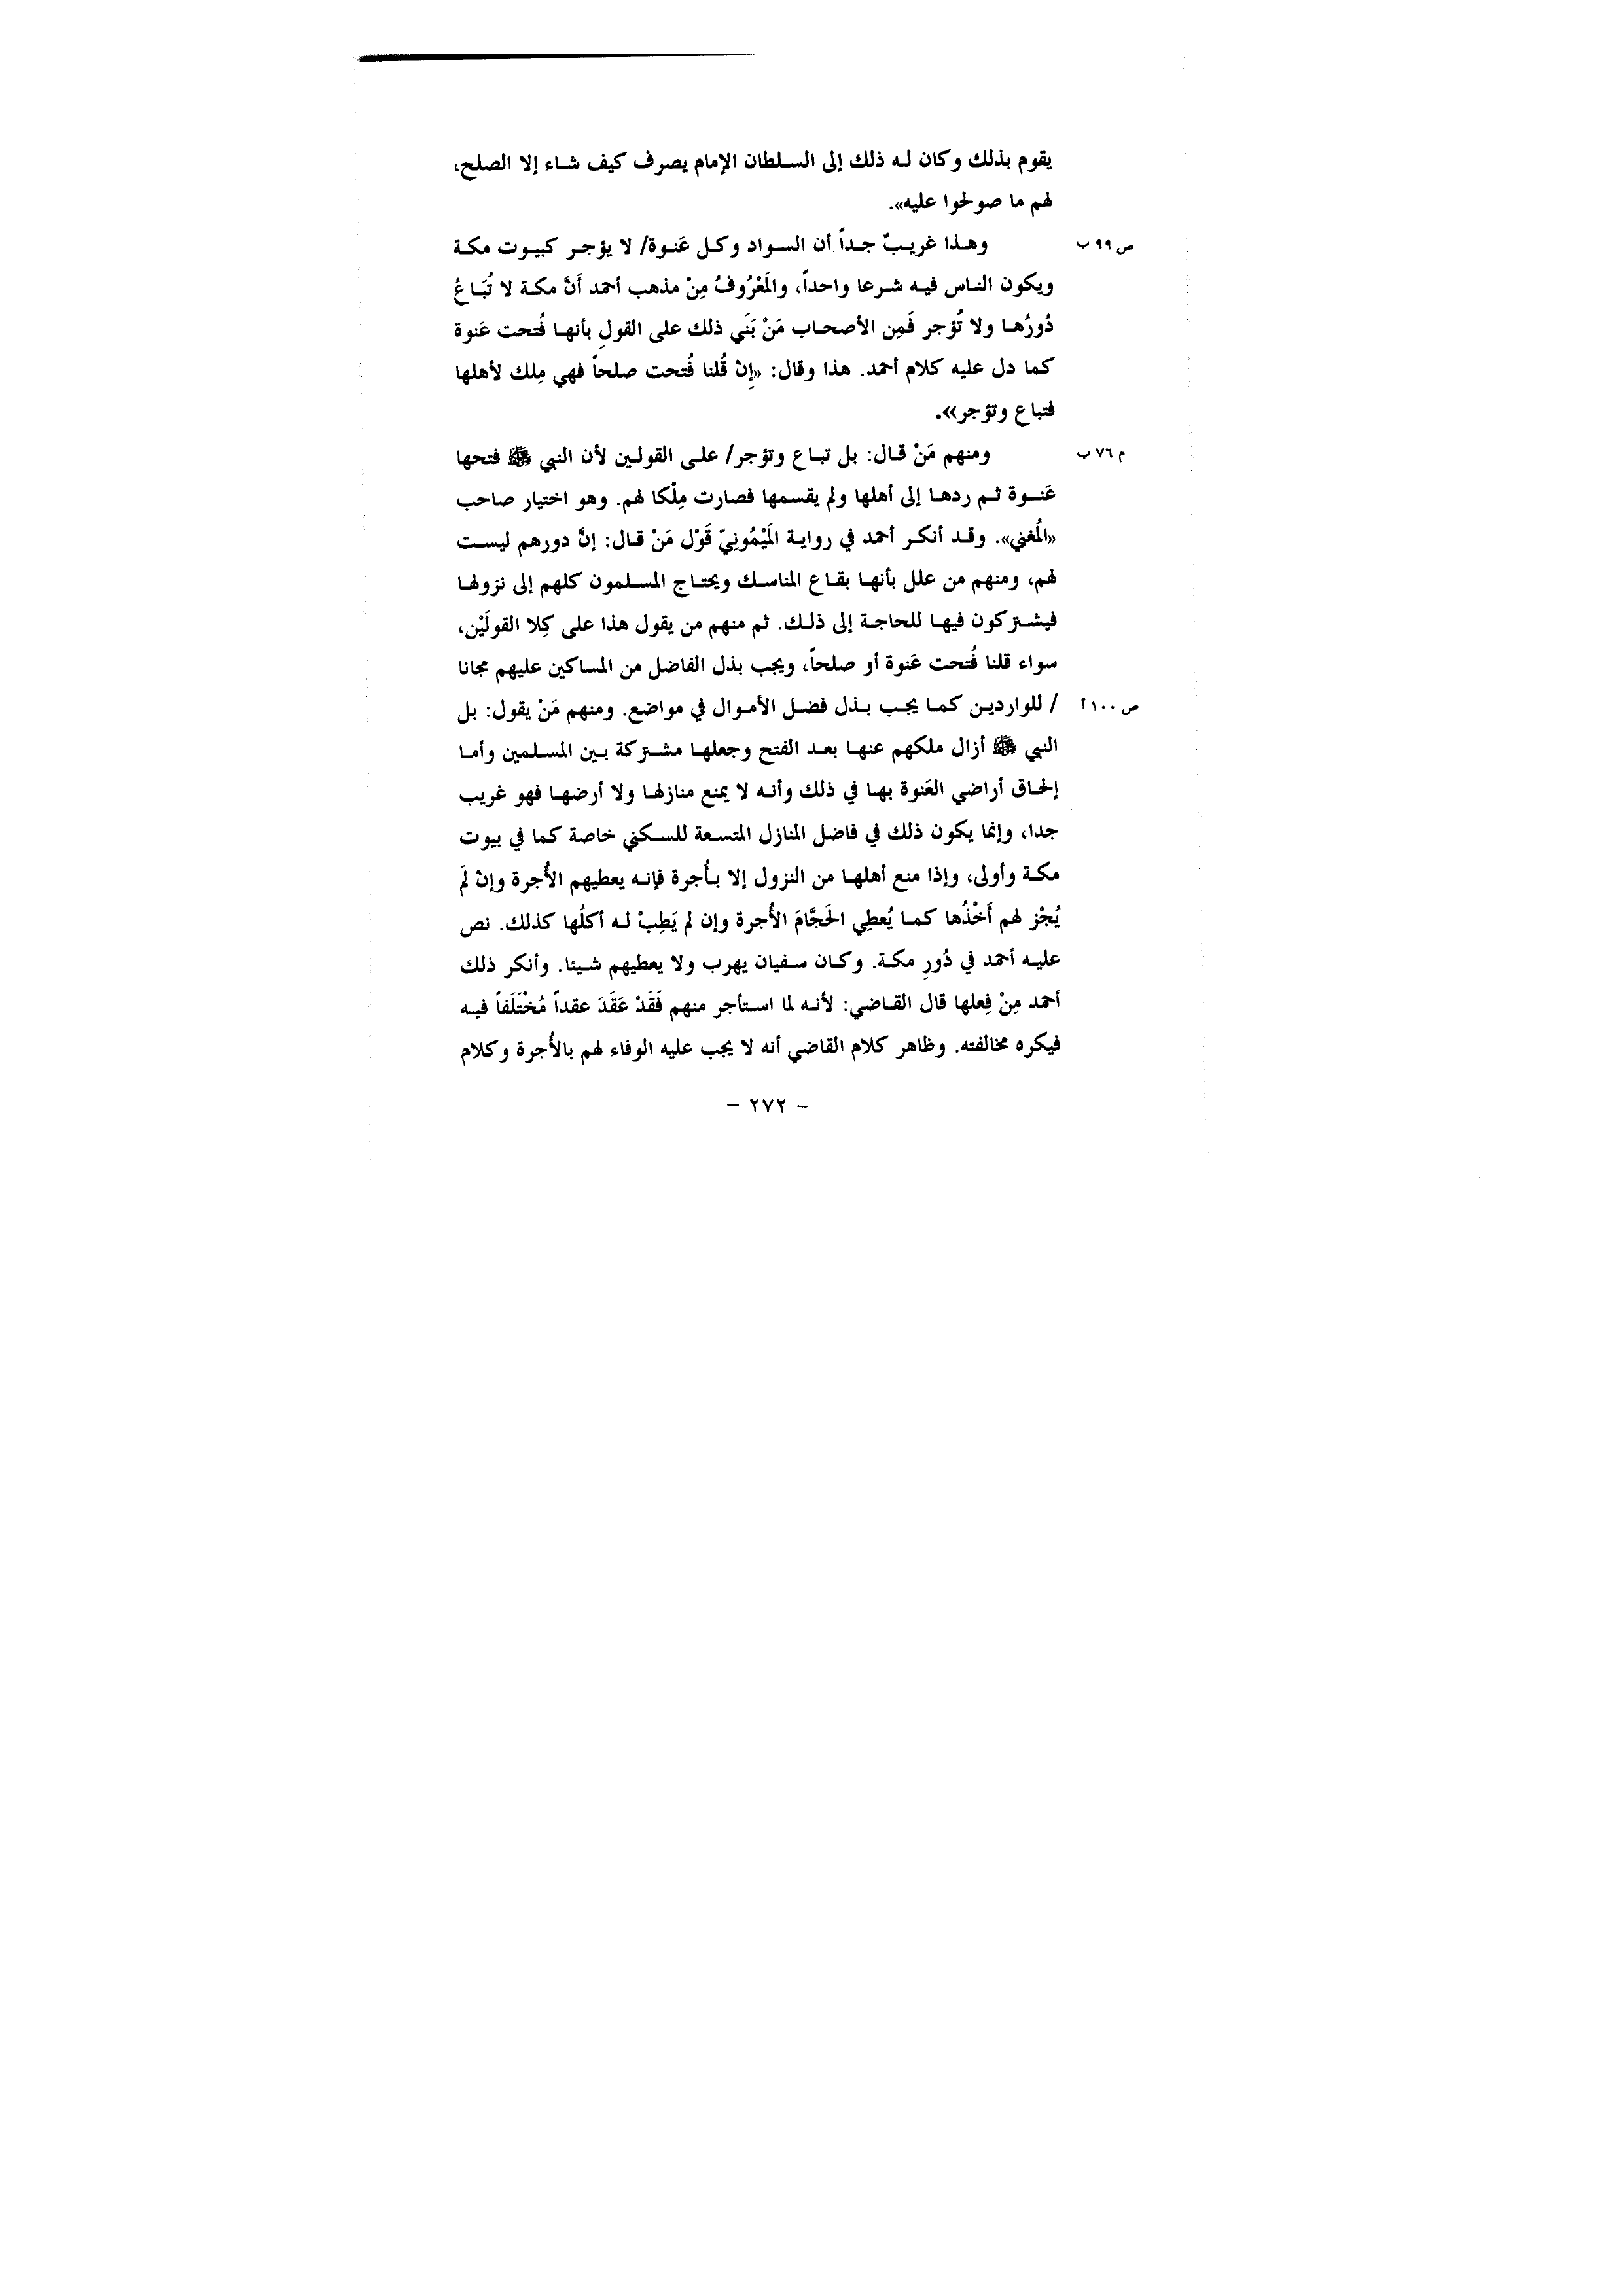 يقوم بذلك وكان له ذلك إلى السلطان الإمام يصرف كيف شاء إلا الصلح،
لهم ما صولحوا عليه».
ص ٩٩ ب وهذا غريبٌ جداً أن السواد وكل عَنوة/ لا يؤجر كبيوت مكة
ويكون الناس فيه شرعا واحداً، والمَعْرُوفُ مِنْ مذهب أحمد أَنَّ مكة لا تُبَاعُ
دُورُها ولا تُؤجر فَمِن الأصحاب مَنْ بَنَي ذلك على القولِ بأنها فُتحت عَنوة
كما دل عليه كلام أحمد. هذا وقال: «إِنْ قُلنا فُتحت صلحاً فهي مِلك لأهلها
فتباع وتؤجر».
م ٧٦ ب ومنهم مَنْ قال: بل تباع وتؤجر/ على القولين لأن النبي ﷺ فتحها
عَنوة ثم ردها إلى أهلها ولم يقسمها فصارت مِلْكا لهم. وهو اختيار صاحب
«المُغني». وقد أنكر أحمد في رواية المَيْمُونِيّ قَوْل مَنْ قال: إنَّ دورهم ليست
لهم، ومنهم من علل بأنها بقاع المناسك ويحتاج المسلمون كلهم إلى نزولها
فيشتركون فيها للحاجة إلى ذلك. ثم منهم من يقول هذا على كِلا القولَيْن،
سواء قلنا فُتحت عَنوة أو صلحاً، ويجب بذل الفاضل من المساكين عليهم مجانا
ص ١٠٠ أ / للواردين كما يجب بذل فضل الأموال في مواضع. ومنهم مَنْ يقول: بل
النبي ﷺ أزال ملكهم عنها بعد الفتح وجعلها مشتركة بين المسلمين وأما
إلحاق أراضي العَنوة بها في ذلك وأنه لا يمنع منازلها ولا أرضها فهو غريب
جدا، وإنما يكون ذلك في فاضل المنازل المتسعة للسكني خاصة كما في بيوت
مكة وأولى، وإذا منع أهلها من النزول إلا بأُجرة فإنه يعطيهم الأُجرة وإنْ لَم
يُجْز لهم أَخْذُها كما يُعطِي الحَجَّامَ الأُجرة وإن لم يَطِبْ له أكلُها كذلك. نص
عليه أحمد في دُورِ مكة. وكان سفيان يهرب ولا يعطيهم شيئا. وأنكر ذلك
أحمد مِنْ فِعلها قال القاضي: لأنه لما استأجر منهم فَقَدْ عَقَدَ عقداً مُخْتَلَفاً فيه
فيكره مخالفته. وظاهر كلام القاضي أنه لا يجب عليه الوفاء لهم بالأُجرة وكلام
- ٢٧٢ -